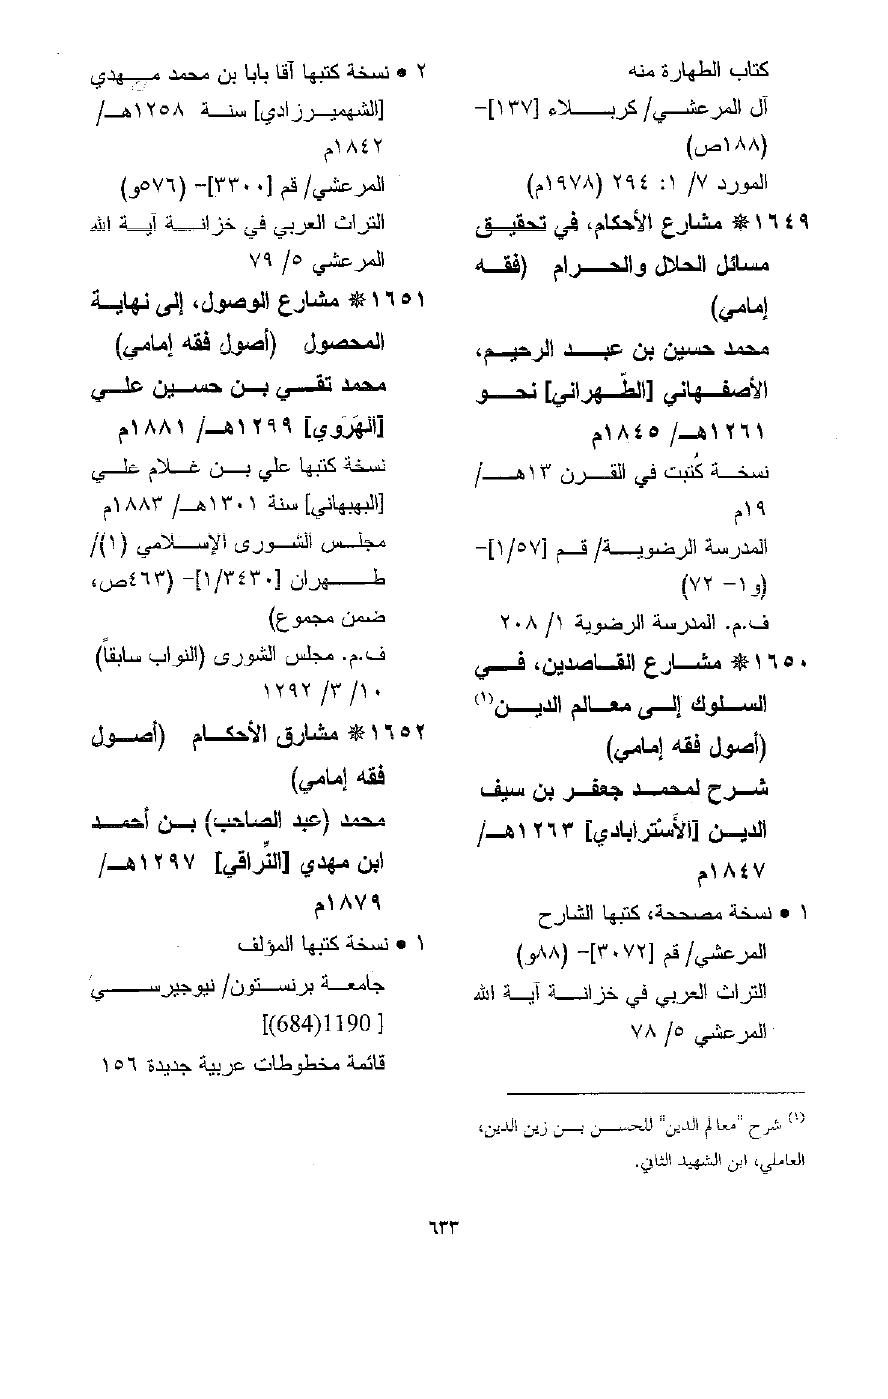 كتاب الطهارة منه
آل المرعشي/ كربلاء [١٣٧]-
(١٨٨ص)
المورد ٧/ ١: ٢٩٤ (١٩٧٨م)
١٦٤٩* مشارع الأحكام، في تحقيق
مسائل الحلال والحرام (فقه
إمامي)
محمد حسين بن عبد الرحيم،
الأصفهاني [الطّهراني] نحو
١٢٦١هـ/ ١٨٤٥م
نسخة كُتبت في القرن ١٣هـ/
١٩م
المدرسة الرضوية/ قم [١/٥٧]-
(و١- ٧٢)
ف.م. المدرسة الرضوية ١/ ٢٠٨
١٦٥٠* مشارع القاصدين، في
السلوك إلى معالم الدين(١)
(أصول فقه إمامي)
شرح لمحمد جعفر بن سيف
الدين [الأَسْتراباذي] ١٢٦٣هـ/
١٨٤٧م
١ • نسخة مصححة، كتبها الشارح
المرعشي/ قم [٣٠٧٢]- (٨٨و)
التراث العربي في خزانة آية الله
المرعشي ٥/ ٧٨
(١) شرح "معالم الدين" للحسن بن زين الدين،
العاملي، ابن الشهيد الثاني.
٢ • نسخة كتبها آقا بابا بن محمد مهدي
[الشهميرزادي] سنة ١٢٥٨هـ/
١٨٤٢م
المرعشي/ قم [٣٣٠٠]- (٥٧٦و)
التراث العربي في خزانة آية الله
المرعشي ٥/ ٧٩
١٦٥١* مشارع الوصول، إلى نهاية
المحصول (أصول فقه إمامي)
محمد تقي بن حسين علي
[الهَرَوي] ١٢٩٩هـ/ ١٨٨١م
نسخة كتبها علي بن غلام علي
[البهبهاني] سنة ١٣٠١هـ/ ١٨٨٣م
مجلس الشورى الإسلامي (١)/
طهران [١/٣٤٣٠]- (٤٦٣ص،
ضمن مجموع)
ف.م. مجلس الشورى (النواب سابقاً)
١٠/ ٣/ ١٢٩٢
١٦٥٢* مشارق الأحكام (أصول
فقه إمامي)
محمد (عبد الصاحب) بن أحمد
ابن مهدي [النِّراقي] ١٢٩٧هـ/
١٨٧٩م
١ • نسخة كتبها المؤلف
جامعة برنستون/ نيوجيرسي
[1190(684)]
قائمة مخطوطات عربية جديدة ١٥٦
٦٣٣